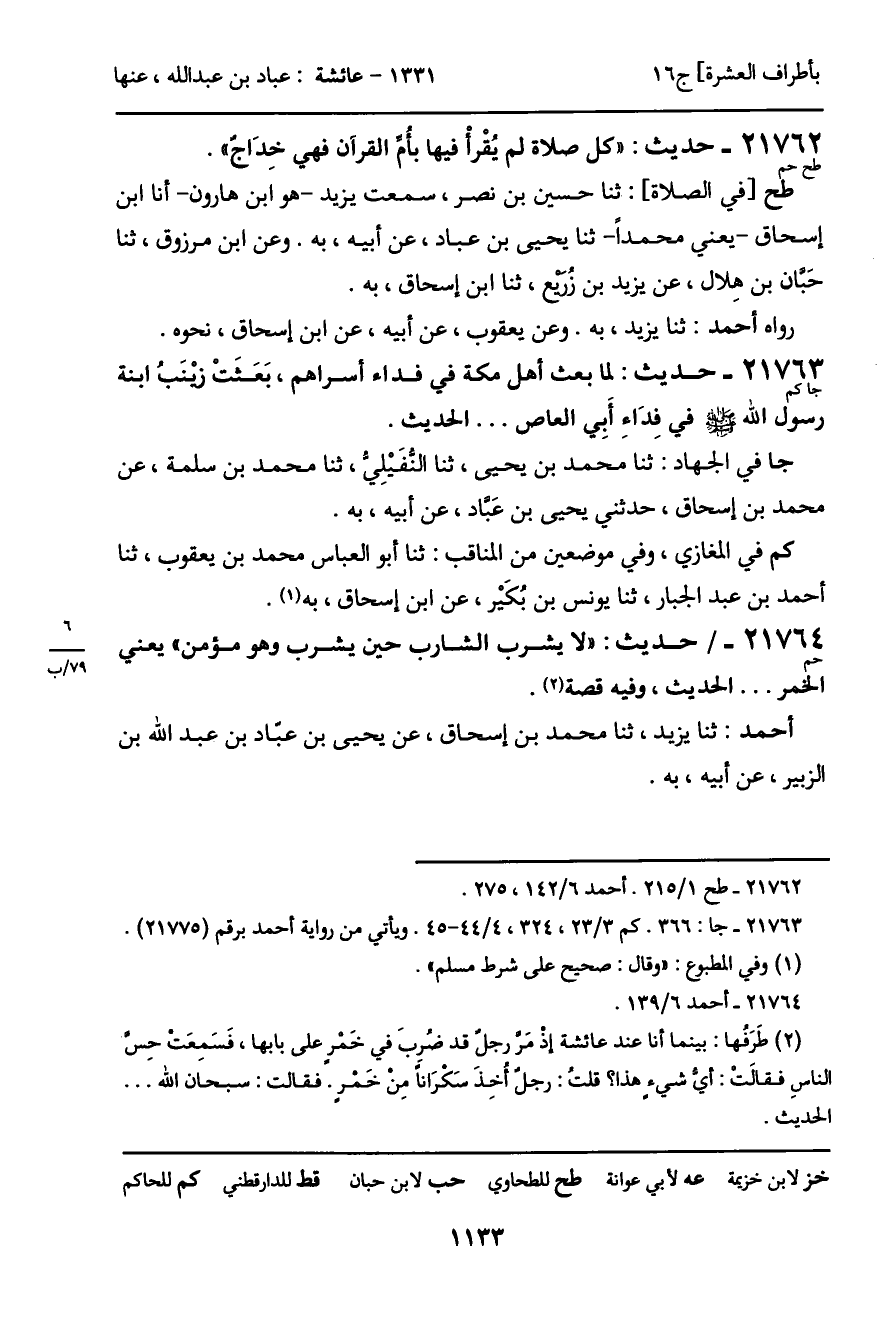 بأطراف العشرة] ج١٦ ١٣٣١ - عائشة : عباد بن عبدالله ، عنها
٢١٧٦٢ ـ حديث : «كل صلاة لم يُقْرأْ فيها بأُمِّ القرآن فهي خِدَاجٌ» .
طح حم
طح [في الصلاة] : ثنا حسين بن نصر ، سمعت يزيد -هو ابن هارون- أنا ابن
إسحاق -يعني محمداً- ثنا يحيى بن عباد ، عن أبيه ، به . وعن ابن مرزوق ، ثنا
حَبَّان بن هِلال ، عن يزيد بن زُرَيْع ، ثنا ابن إسحاق ، به .
رواه أحمد : ثنا يزيد ، به . وعن يعقوب ، عن أبيه ، عن ابن إسحاق ، نحوه .
٢١٧٦٣ ـ حديث : لما بعث أهل مكة في فداء أسراهم ، بَعَثَتْ زيْنَبُ ابنة
جا كم
رسول الله ﷺ في فِدَاءِ أَبِي العاص ... الحديث .
جا في الجهاد : ثنا محمد بن يحيى ، ثنا النُّفَيْلِيُّ ، ثنا محمد بن سلمة ، عن
محمد بن إسحاق ، حدثني يحيى بن عَبَّاد ، عن أبيه ، به .
كم في المغازي ، وفي موضعين من المناقب : ثنا أبو العباس محمد بن يعقوب ، ثنا
أحمد بن عبد الجبار ، ثنا يونس بن بُكَيْر ، عن ابن إسحاق ، به(١) .
٦
٧٩/ب
٢١٧٦٤ ـ / حديث : «لا يشرب الشارب حين يشرب وهو مؤمن» يعني
حم
الخمر ... الحديث ، وفيه قصة(٢) .
أحمد : ثنا يزيد ، ثنا محمد بن إسحاق ، عن يحيى بن عبّاد بن عبد الله بن
الزبير ، عن أبيه ، به .
٢١٧٦٢ ـ طح ٢١٥/١ . أحمد ١٤٢/٦ ، ٢٧٥ .
٢١٧٦٣ ـ جا : ٣٦٦ . كم ٢٣/٣ ، ٣٢٤ ، ٤٤/٤-٤٥ . ويأتي من رواية أحمد برقم (٢١٧٧٥) .
(١) وفي المطبوع : «وقال : صحيح على شرط مسلم» .
٢١٧٦٤ ـ أحمد ١٣٩/٦ .
(٢) طَرَفُها : بينما أنا عند عائشة إذْ مَرَّ رجلٌ قد ضُرِبَ في خَمْرٍ على بابها ، فَسَمِعَتْ حِسَّ
الناسِ فقالَتْ : أيُّ شيءٍ هذا؟ قلتُ : رجلٌ أُخِذَ سَكْرَاناً مِنْ خَمْرٍ . فقالت : سبحان الله ...
الحديث .
خز لابن خزيمة عه لأبي عوانة طح للطحاوي حب لابن حبان قط للدارقطني كم للحاكم
١١٣٣